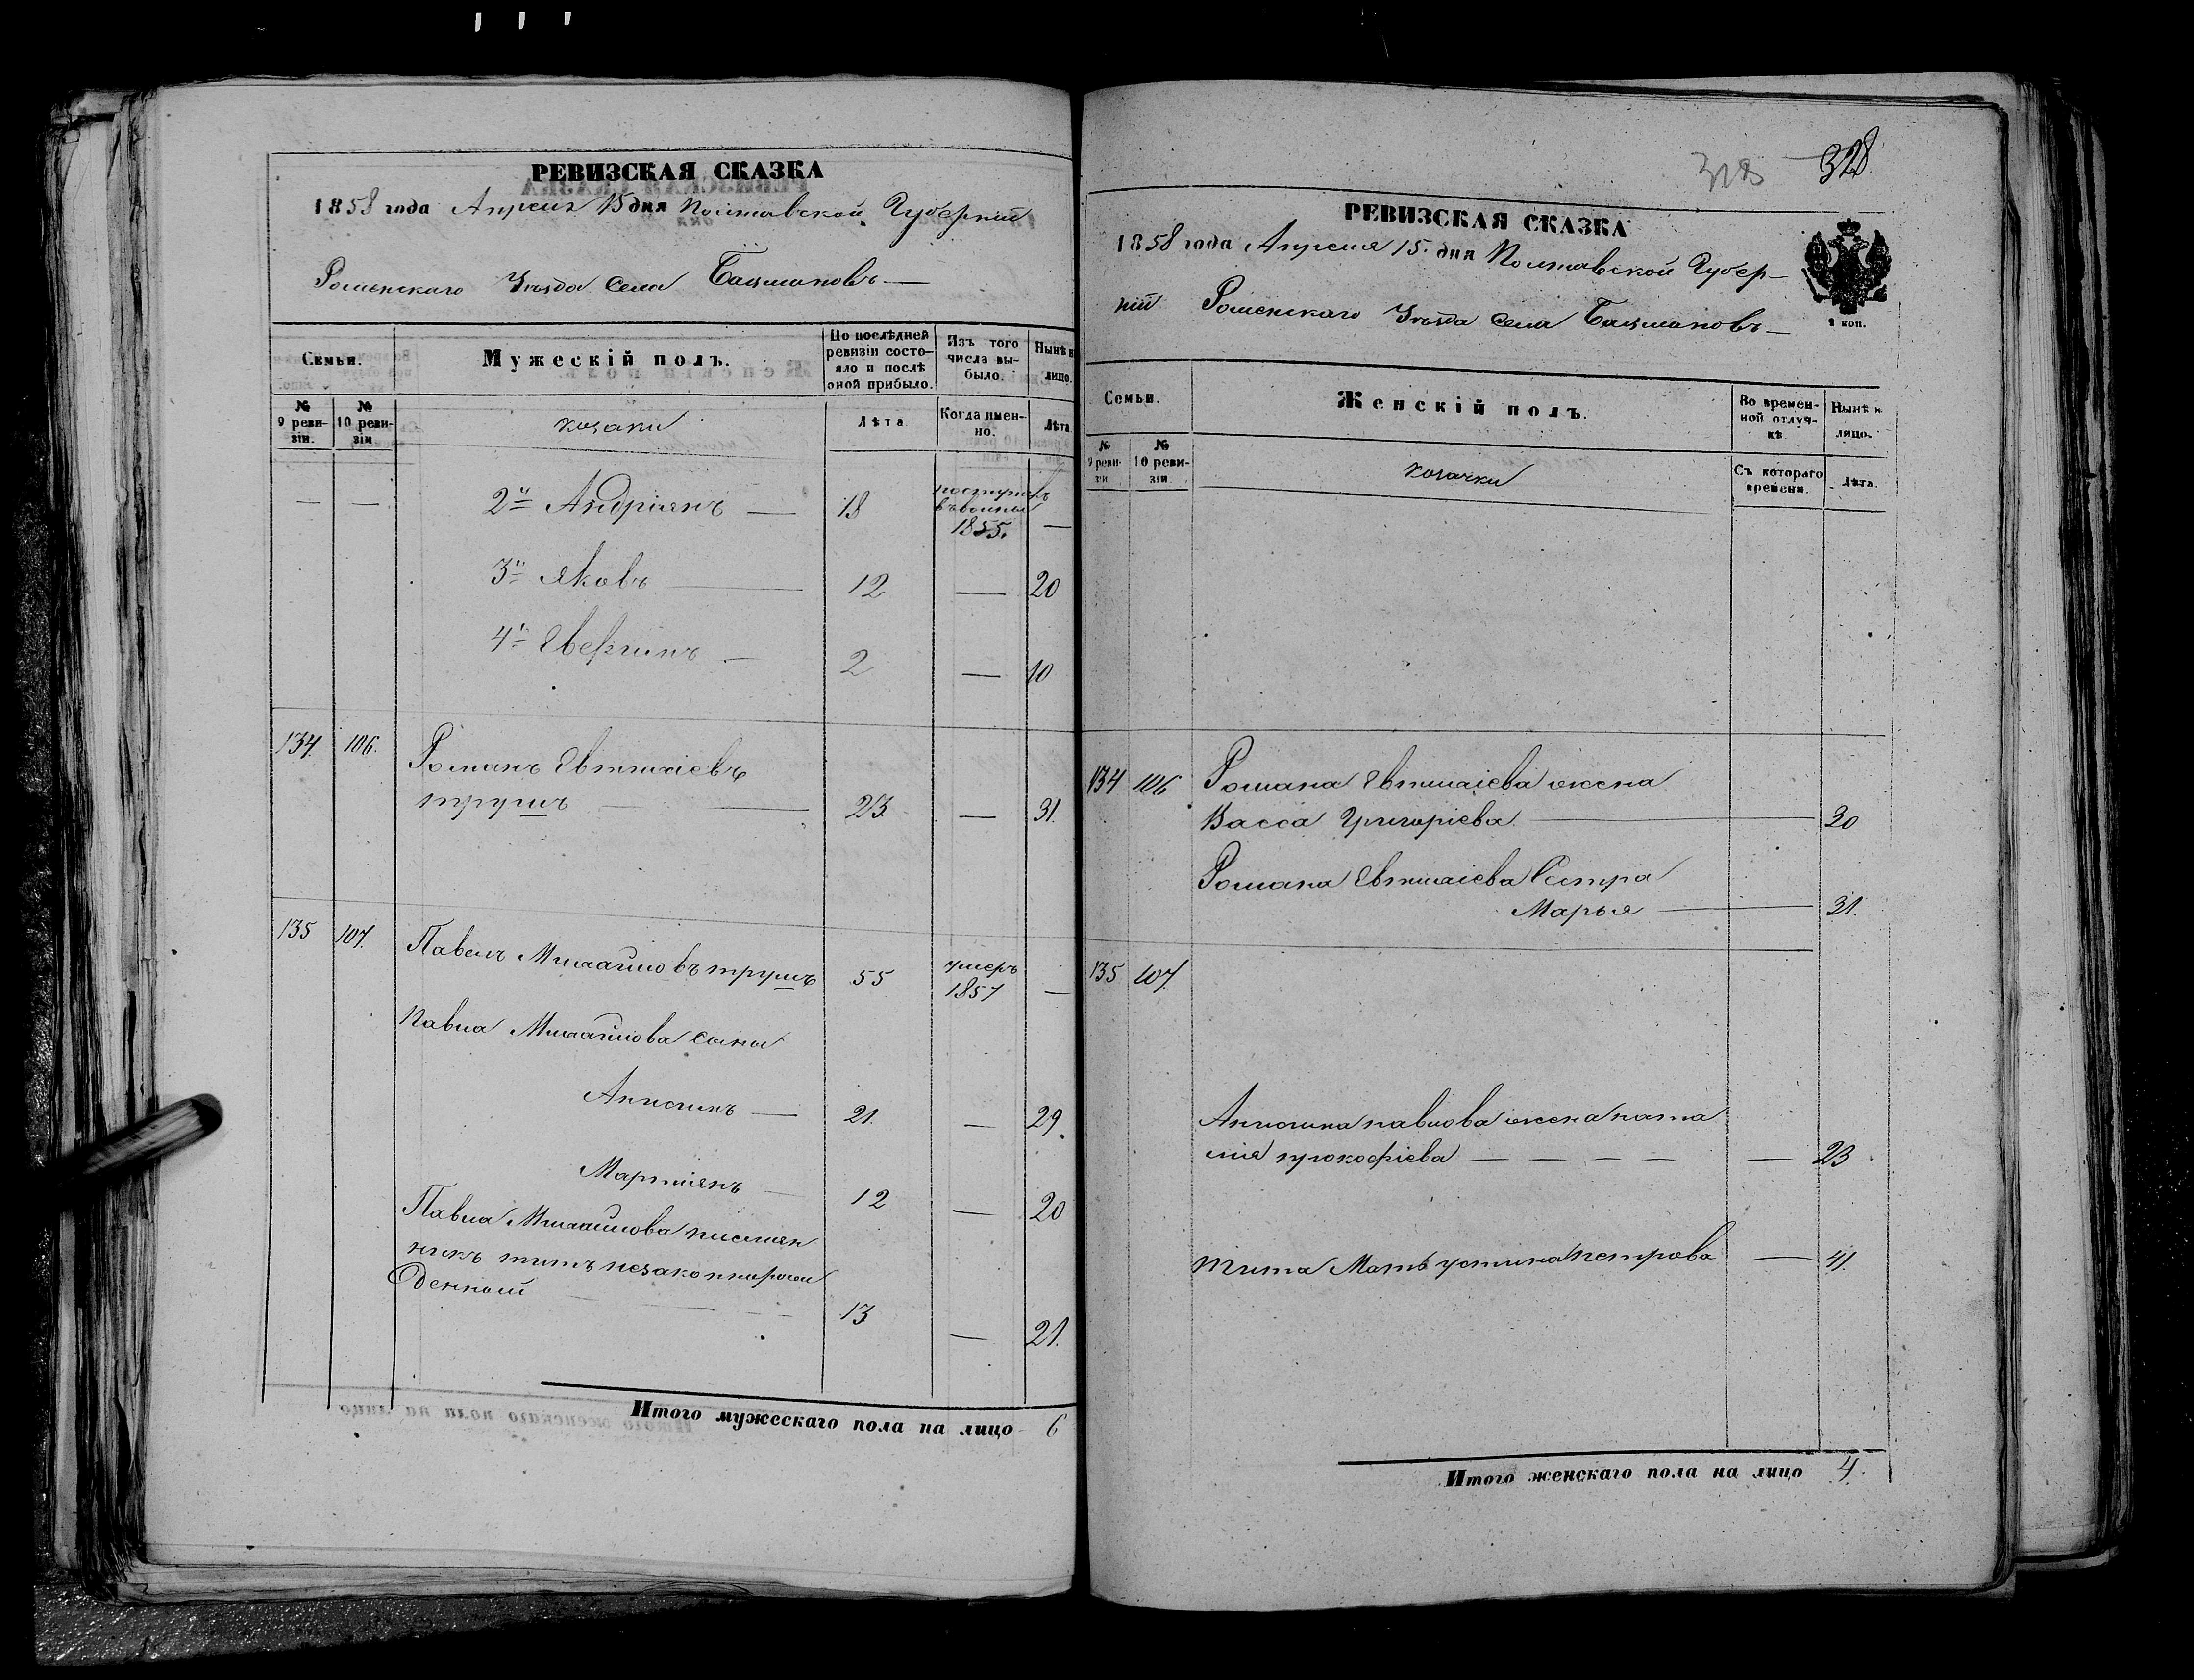 РЕВИЗСКАЯ СКАЗКА
1858 года Апреля 15 дня Полтавской Губерніи
Роменскаго Уѣзда Села Бацмановъ
Семьи.
Мужескій полъ.
По послѣдней ревизіи состояло и послѣ оной прибыло.
Изъ того числа выбыло.
Нынѣ н лицо.
№ 9 ревизіи.
№ 10 ревизіи
козаки
Лѣта
Когда именно.
Лѣта
— — 2й Андріянъ — 18 поступилъ
въ воины
1855. —
3й Яковъ — 12 — 20
4й — 2 — 10
134 106. Романъ Евтихіевъ
трушъ — 23 — 31.
135 107. Павелъ Михайловъ трушъ 55 умеръ
1857 —
Павла Михайлова сыны
21. — 29.
Мартинъ — 12 — 20
Павла Михайлова племян
никъ титъ незаконнорож
денной — 13 — 21.
Итого мужескаго пола на лицо 6
328
328
РЕВИЗСКАЯ СКАЗКА
1858 года Апреля 15. дня Полтавской Губер-
ніи Роменскаго Уѣзда Села Бацмановъ
2 коп.
Семьи.
Женскій полъ.
Во временной отлучкѣ
Нынѣ н лицо.
№ 9 ревизіи
№ 10 ревизіи.
козачки
Съ котораго времени.
Лѣта.
134 106 Романа Евтихіева жена
Васса Григоріева — 30
Романа Евтихіева Сестра
Марья — 31.
135 107.
павлова жена ната
лія прокофіева — — — — — 23
Тита Мать устина петрова — 41.
Итого женскаго пола на лицо 4.